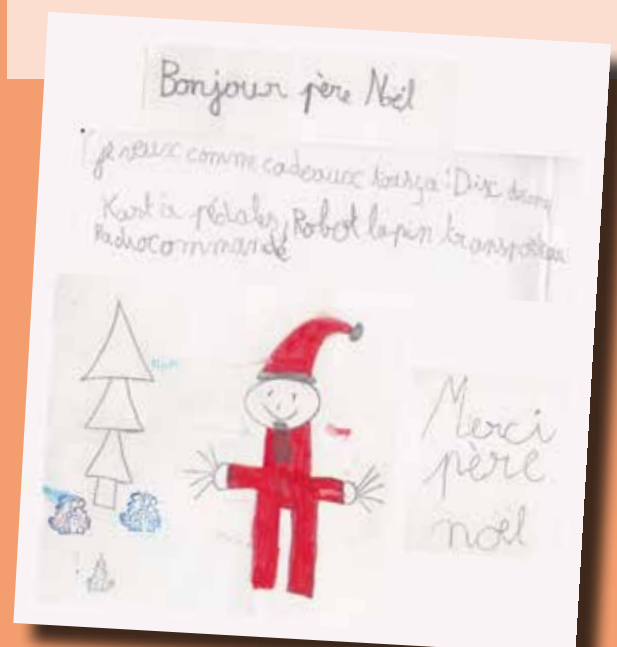 Bonjour père Noël
je veux comme cadeaux tout ça : Disc
Kart à pédales, Robot lapin
Radiocommandé
Merci
père
noël